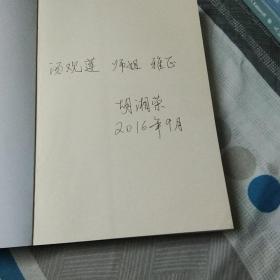 汤观莲 师姐 雅正
胡湘荣
2016年9月